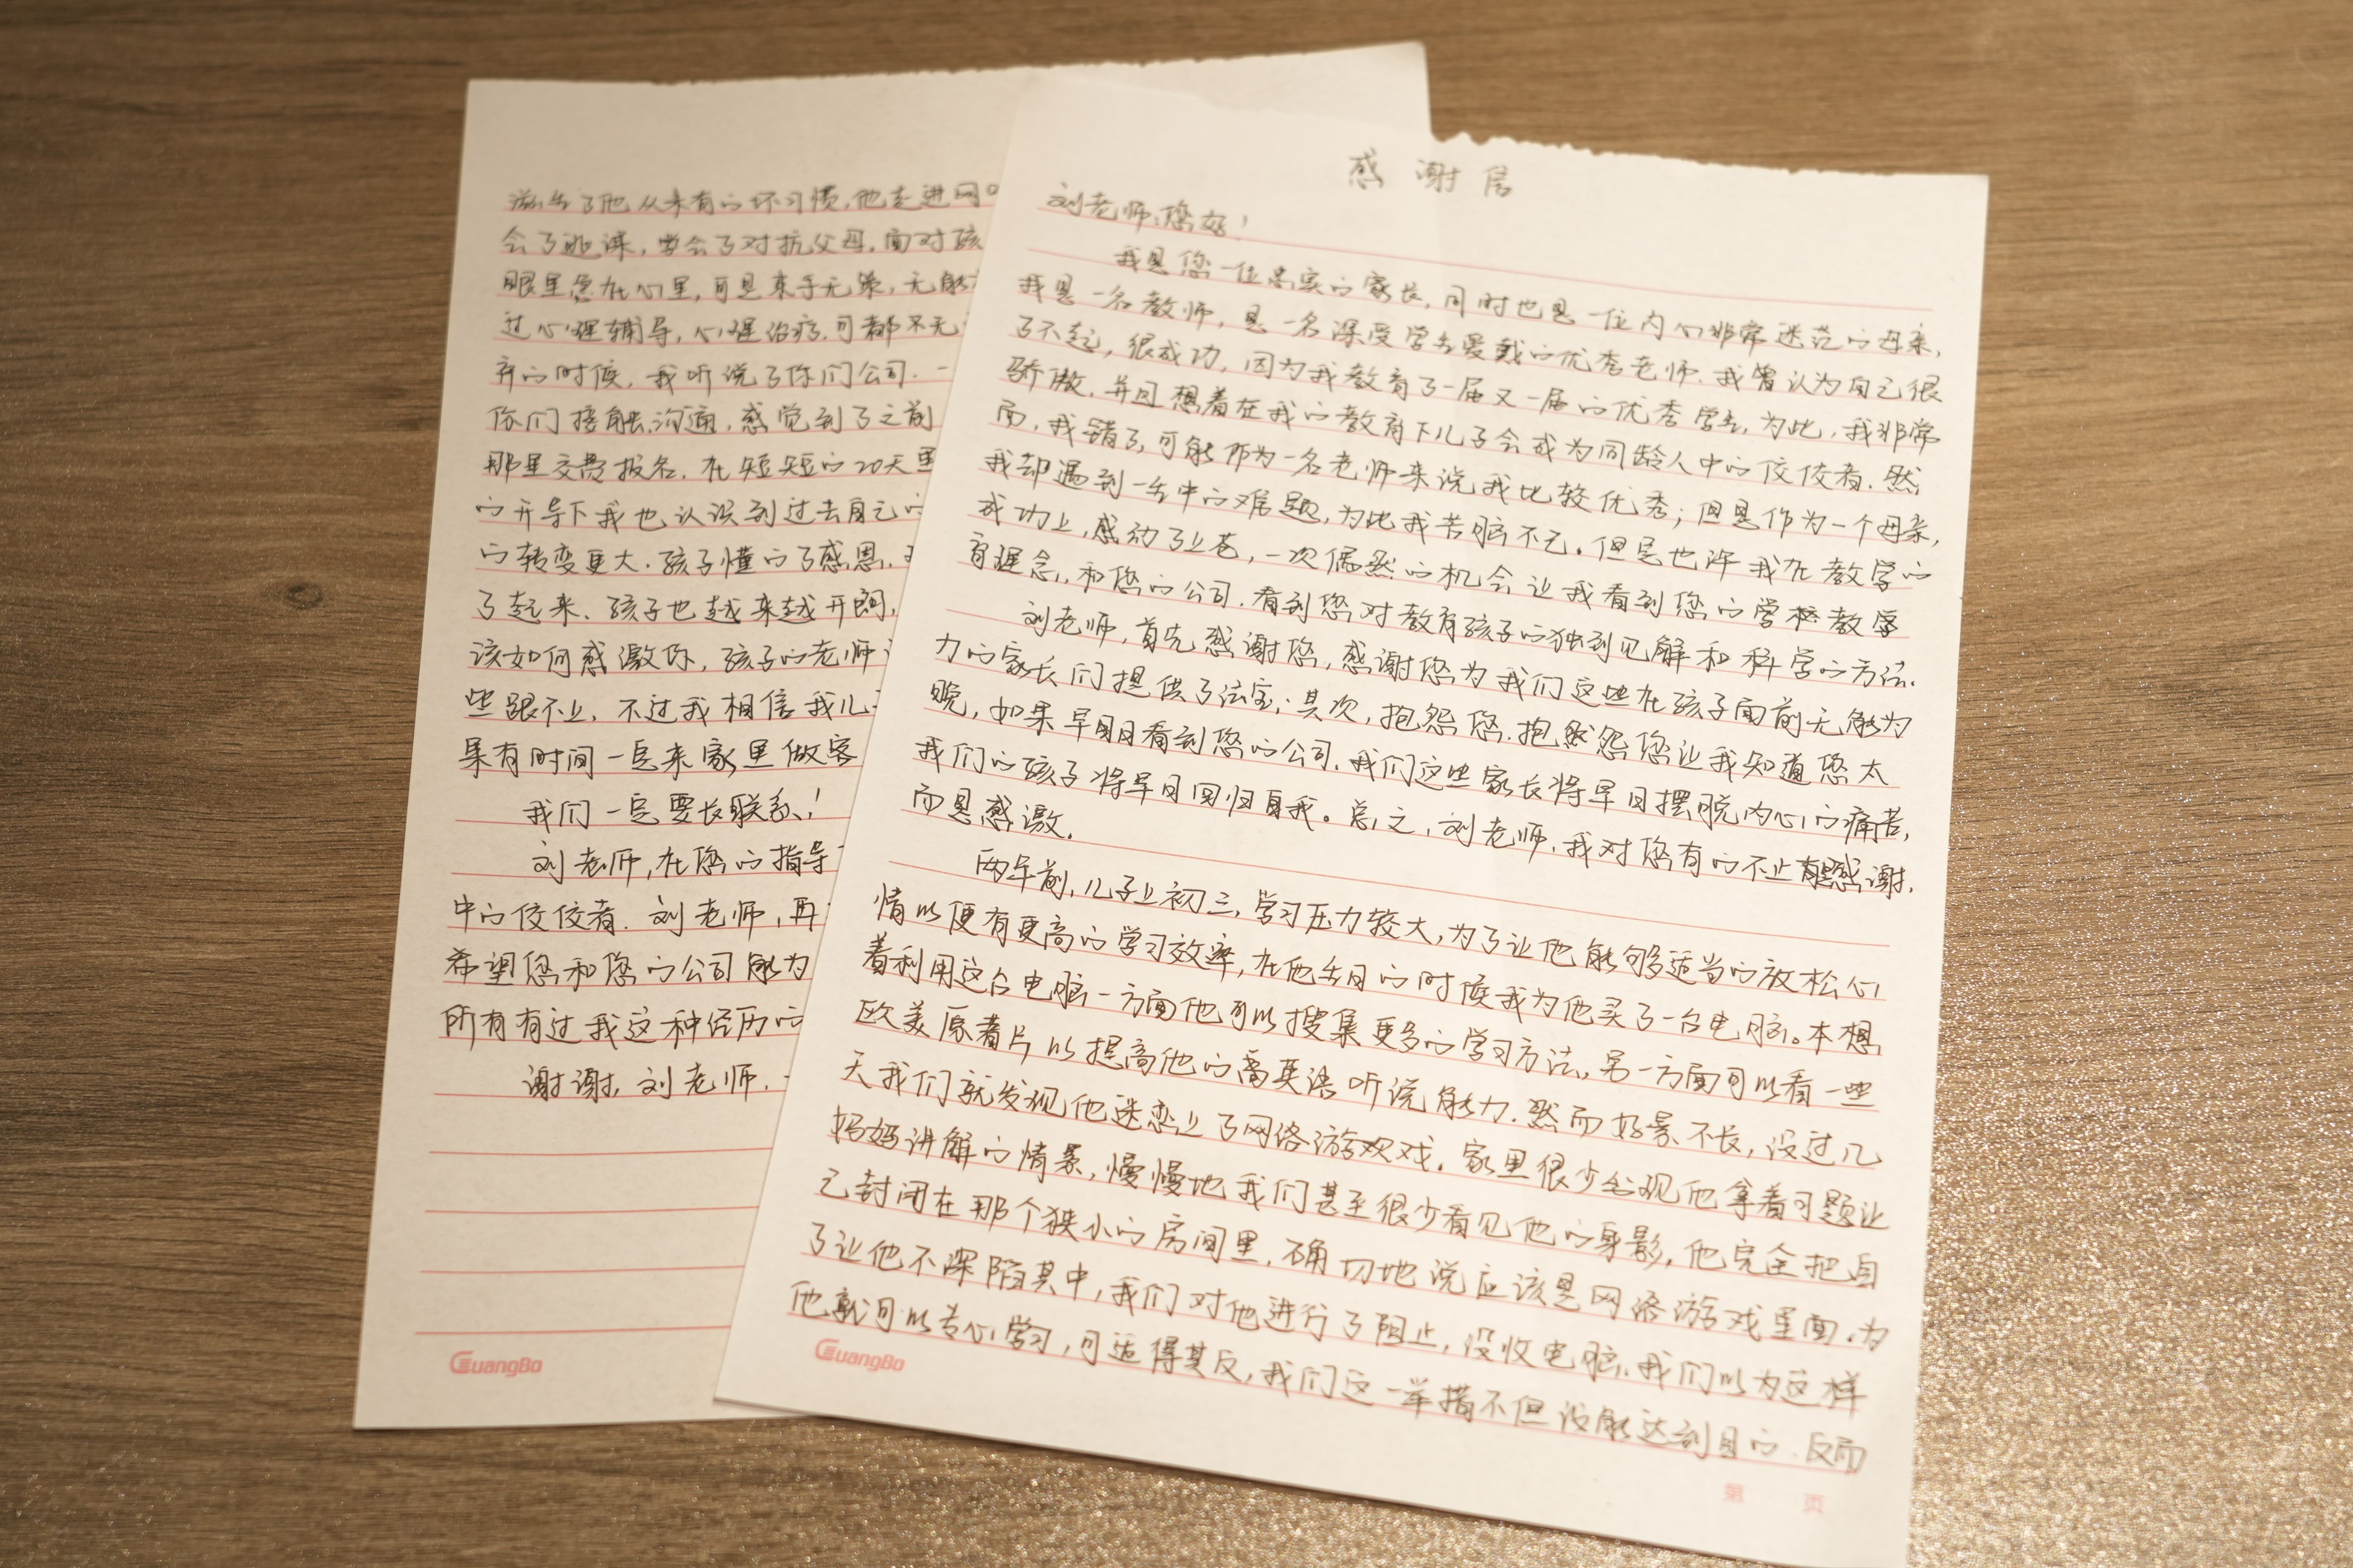 感谢信
刘老师，您好！
我是您一位忠实的家长，同时也是一位内心非常迷茫的母亲，
我是一名教师，是一名深受学生爱戴的优秀老师.我曾认为自己很
了不起，很成功，因为我教育了一届又一届的优秀学生，为此，我非常
骄傲，并且想着在我的教育下儿子会成为同龄人中的佼佼者.然
而，我错了，可能作为一名老师来说我比较优秀；但是作为一个母亲，
我却遇到一生中的难题，为此我苦脑不已。但是也许我在教学的
成功上，感动了上苍，一次偶然的机会让我看到您的学校教学
育理念，和您的公司.看到您对教育孩子的独到见解和科学的方法.
刘老师，首先感谢您，感谢您为我们这些在孩子面前无能为
力的家长们提供了法宝；其次，抱怨您.抱怨您让我知道您太
晚，如果早日看到您的公司.我们这些家长将早日摆脱内心的痛苦，
我们的孩子将早日回归自我。总之，刘老师，我对您有的不止感谢，
而是感激.
两年前，儿子上初三，学习压力较大，为了让他能够适当的放松心
情以便有更高的学习效率，在他生日的时候我为他买了一台电脑。本想
着利用这台电脑一方面他可以搜集更多的学习方法，另一方面可以看一些
欧美原着片以提高他的英语听说能力.然而好景不长，没过几
天我们就发现他迷恋上了网络游戏.家里很少出现他拿着习题让
妈妈讲解的情景，慢慢地我们甚至很少看见他的身影，他完全把自
己封闭在那个狭小的房间里.确切地说应该是网络游戏里面.为
了让他不深陷其中，我们对他进行了阻止，没收电脑.我们以为这样
他就可以专心学习，可适得其反，我们这一举措不但没能达到目的.反而
GuangBo
第 页
滋生了他从未有的坏习惯.他走进网吧
会了逃课，学会了对抗父母.面对孩
眼里急在心里，可是束手无策，无能
过心理辅导，心理治疗.可都不无
弃的时候，我听说了你们公司.一
你们接触沟通，感觉到了之前
那里交费报名.在短短的20天里
的开导下我也认识到过去自己的
的转变更大.孩子懂的了感恩.
了起来.孩子也越来越开朗，
该如何感激你，孩子的老师
些跟不上，不过我相信我儿
果有时间一定来家里做客
我们一定要长联系！
刘老师，在您的指导
中的佼佼者.刘老师，再
希望您和您的公司能为
所有有过我这种经历的
谢谢，刘老师.
GuangBo